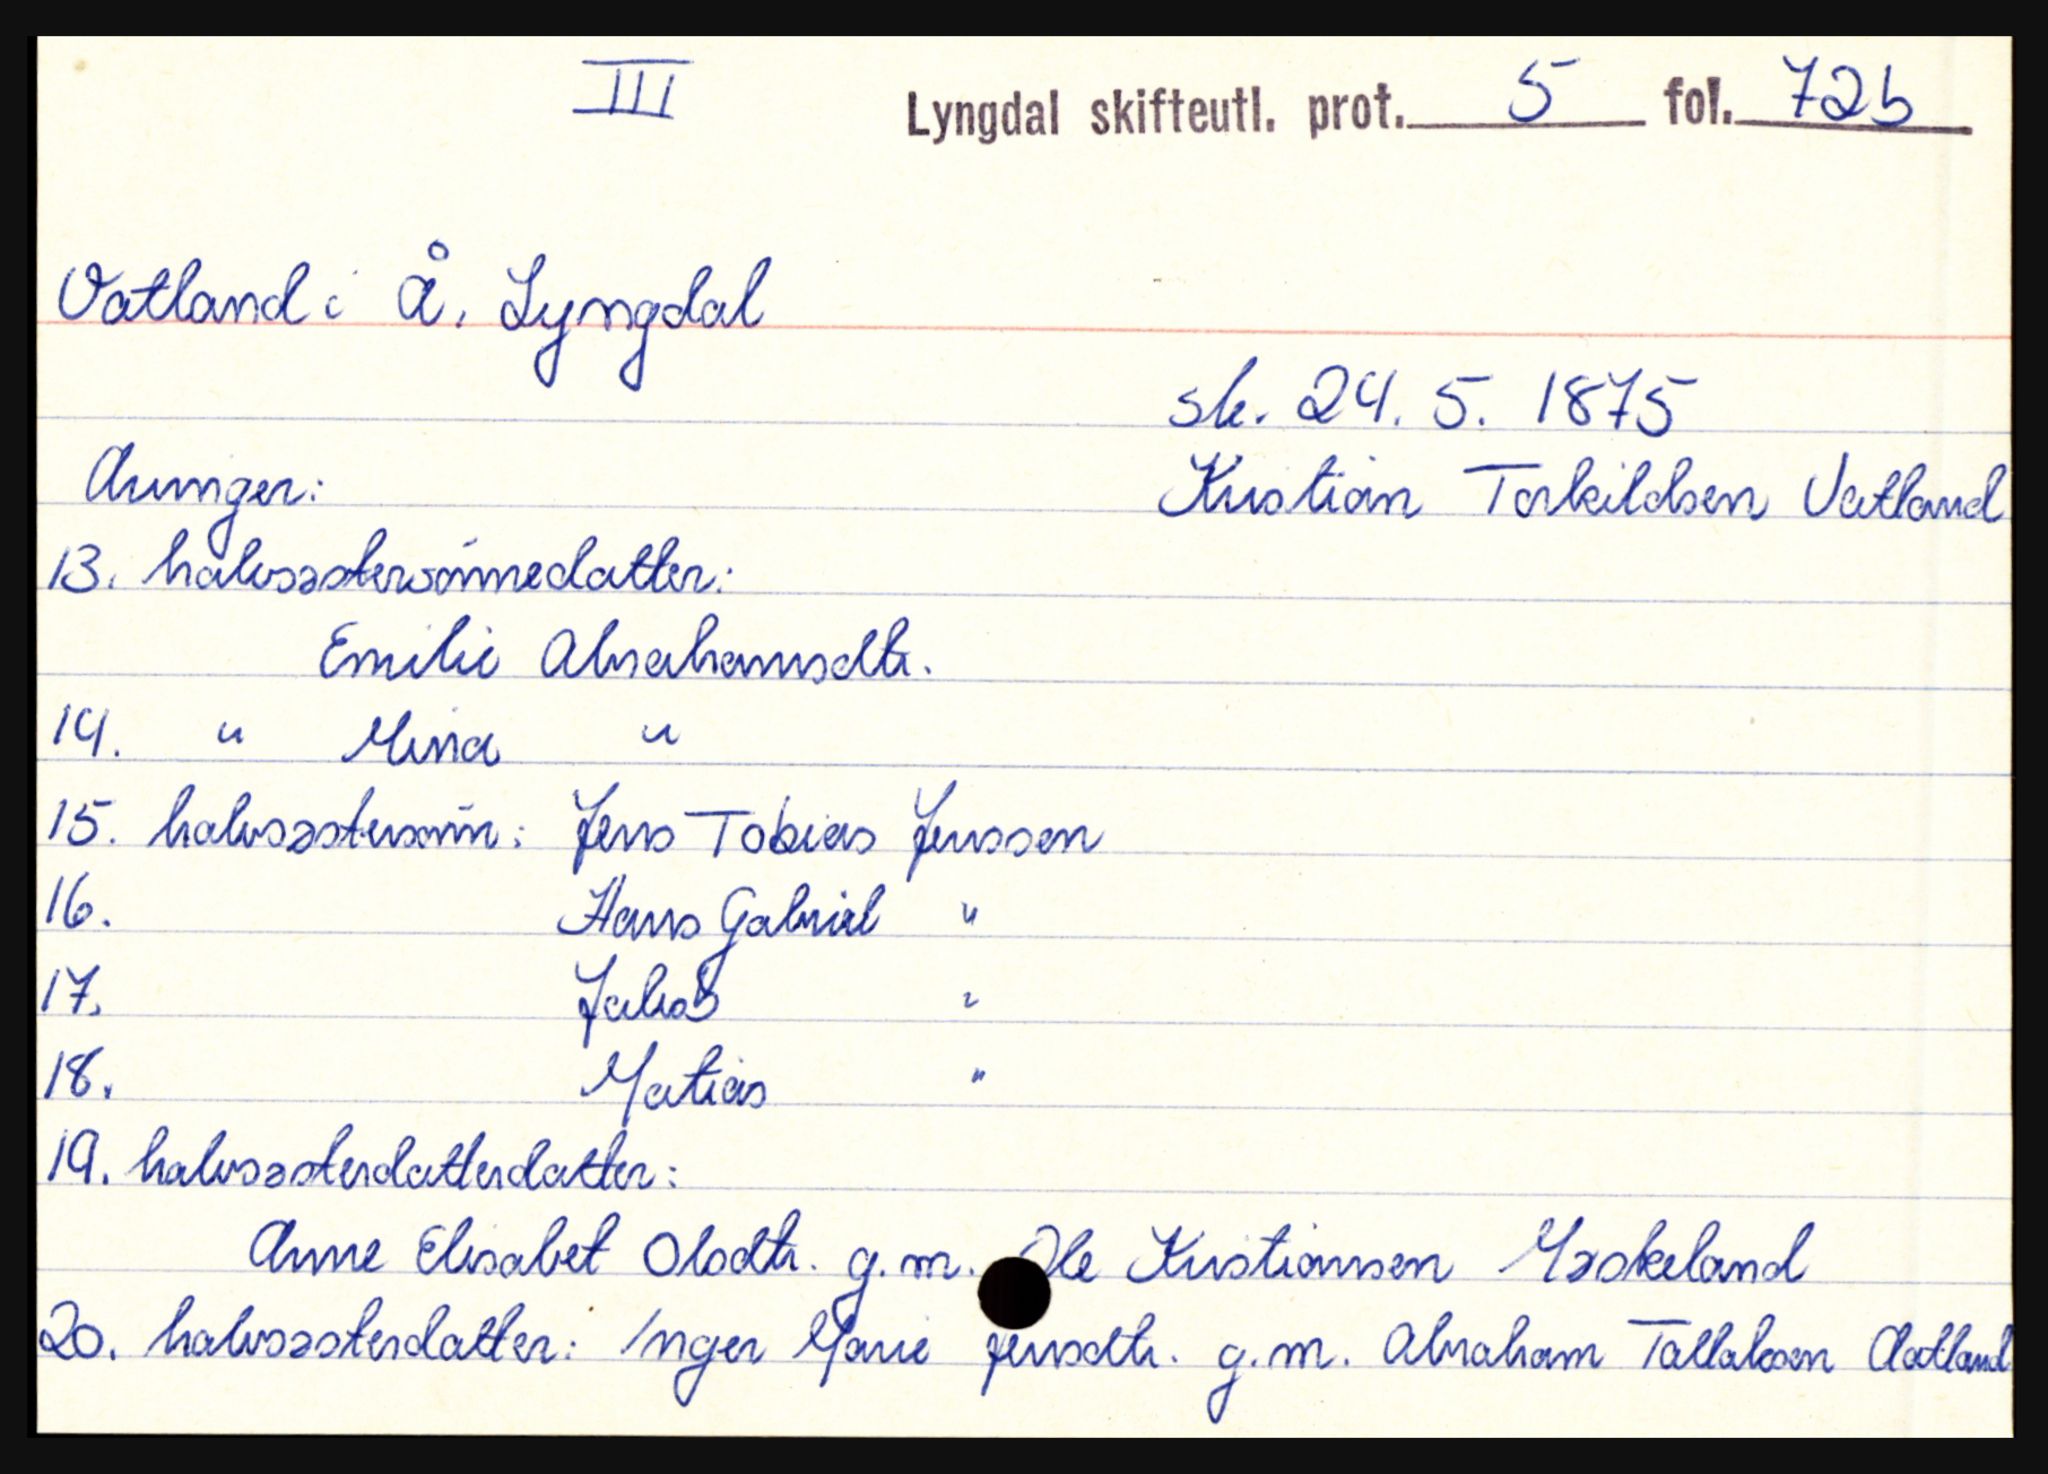 III Lyngdal skifteutl. prot. 5 fol. 72b
Vatland i Å, Lyngdal
sk. 24. 5. 1875
Arvinger: Kristian Torkildsen Vatland
13. halvsøstersønnedatter:
Emilie Abrahamsdtr.
14. " Mina "
15. halvsøstersønn: Jens Tobias Jenssen
16. Hans Gabriel "
17. Jakob "
18. Matias "
19. halvsøsterdatterdatter:
Anne Elisabet Olsdtr. g.m. Ole Kristiansen Møskeland
20. halvsøsterdatter: Inger Marie Jensdtr. g.m. Abraham Tallaksen